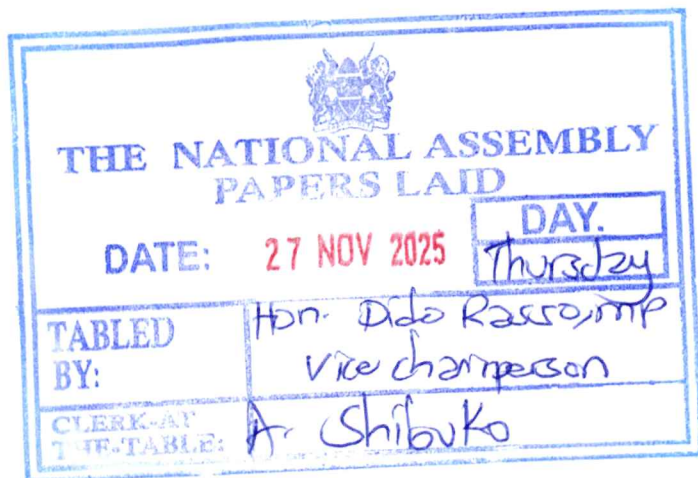 THE NATIONAL ASSEMBLY
PAPERS LAID
DATE: 27 NOV 2025
DAY.
Thursday
TABLED BY:
Hon. Dido Rasso, MP
Vice chairperson
CLERK-AT THE-TABLE:
A. Shibuko